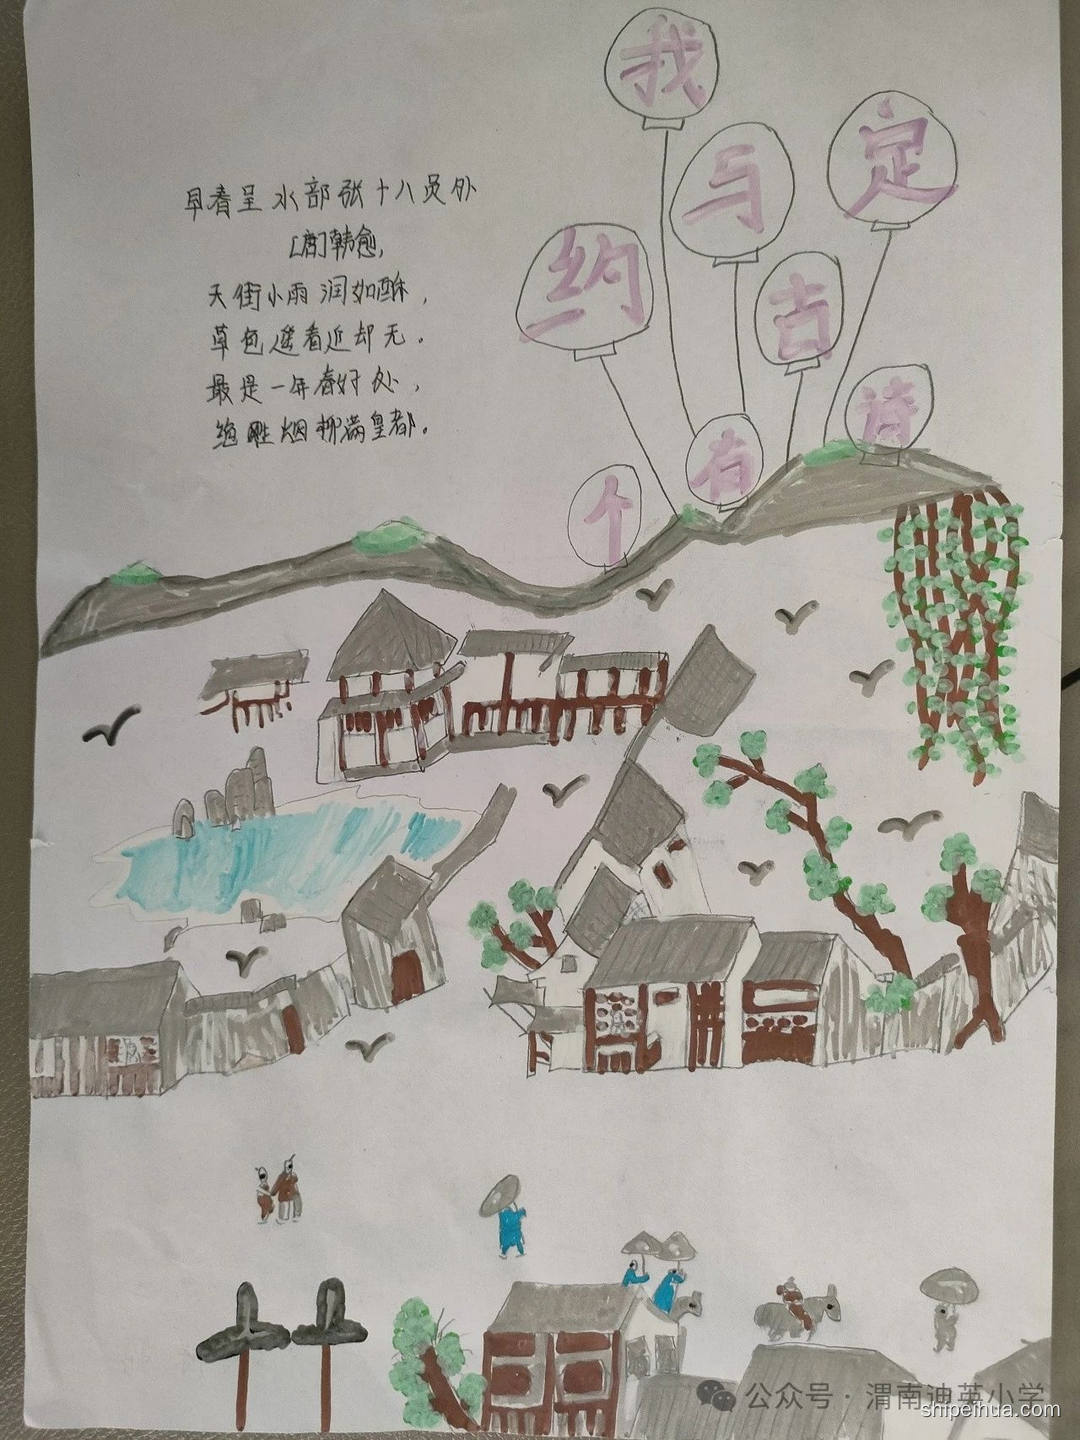 我
与
定
约
古
诗
有
个
早春呈水部张十八员外
[唐]韩愈
天街小雨润如酥，
草色遥看近却无。
最是一年春好处，
绝胜烟柳满皇都。
公众号·渭南迪英小学
shipeihua.com